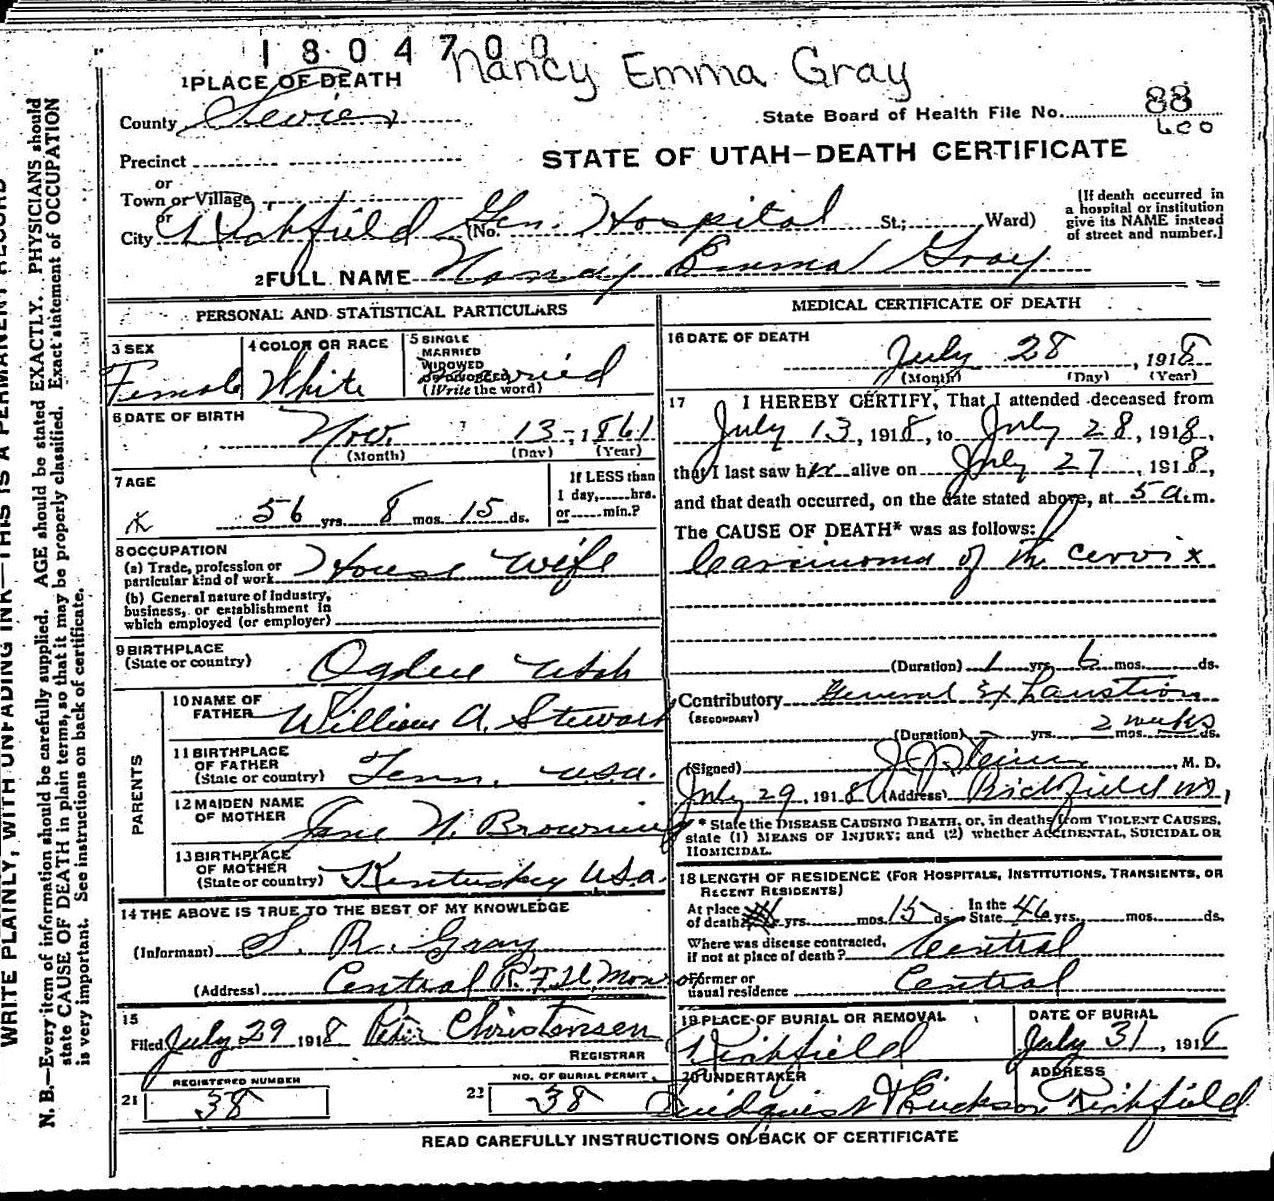 1804700
Nancy Emma Gray
1 PLACE OF DEATH
County Sevier
State Board of Health File No. 88
600
Precinct
STATE OF UTAH—DEATH CERTIFICATE
or
Town or Village
or
City Richfield (No. Gen. Hospital St.; Ward)
[If death occurred in a hospital or institution give its NAME instead of street and number.]
2 FULL NAME Nancy Emma Gray
PERSONAL AND STATISTICAL PARTICULARS
3 SEX
Female
4 COLOR OR RACE
White
5 SINGLE
MARRIED
WIDOWED
OR DIVORCED
(Write the word)
Married
6 DATE OF BIRTH
Nov. 13, 1861
(Month) (Day) (Year)
7 AGE
56 yrs. 8 mos. 15 ds.
If LESS than
1 day, hrs.
or min.?
8 OCCUPATION
(a) Trade, profession or
particular kind of work House Wife
(b) General nature of industry,
business, or establishment in
which employed (or employer)
9 BIRTHPLACE
(State or country) Ogden Utah
PARENTS
10 NAME OF
FATHER William A. Stewart
11 BIRTHPLACE
OF FATHER
(State or country) Tenn. U.S.A.
12 MAIDEN NAME
OF MOTHER Jane N. Browning
13 BIRTHPLACE
OF MOTHER
(State or country) Kentucky U.S.A.
14 THE ABOVE IS TRUE TO THE BEST OF MY KNOWLEDGE
(Informant) S. R. Gray
(Address) Central
15
Filed July 29 1918 Peter Christensen
REGISTRAR
REGISTERED NUMBER
21 38
NO. OF BURIAL PERMIT
22 38
MEDICAL CERTIFICATE OF DEATH
16 DATE OF DEATH
July 28, 1918
(Month) (Day) (Year)
17 I HEREBY CERTIFY, That I attended deceased from
July 13, 1918, to July 28, 1918,
that I last saw her alive on July 27, 1918,
and that death occurred, on the date stated above, at 5 a.m.
The CAUSE OF DEATH* was as follows:
Carcinoma of the cervix
(Duration) 1 yrs. 6 mos. ds.
Contributory General Exhaustion
(SECONDARY)
(Duration) yrs. mos. ds. 2 weeks
(Signed) , M. D.
July 29, 1918 (Address) Richfield
* State the DISEASE CAUSING DEATH, or, in deaths from VIOLENT CAUSES,
state (1) MEANS OF INJURY; and (2) whether ACCIDENTAL, SUICIDAL OR
HOMICIDAL.
18 LENGTH OF RESIDENCE (FOR HOSPITALS, INSTITUTIONS, TRANSIENTS, OR
RECENT RESIDENTS)
At place of death yrs. mos. 15 ds. In the State 46 yrs. mos. ds.
Where was disease contracted,
if not at place of death? Central
Former or
usual residence Central
19 PLACE OF BURIAL OR REMOVAL
Richfield
DATE OF BURIAL
July 31, 1918
20 UNDERTAKER
& Erickson
ADDRESS
Richfield
READ CAREFULLY INSTRUCTIONS ON BACK OF CERTIFICATE
WRITE PLAINLY, WITH UNFADING INK—THIS IS A PERMANENT RECORD
N. B.—Every item of information should be carefully supplied. AGE should be stated EXACTLY. PHYSICIANS should
state CAUSE OF DEATH in plain terms, so that it may be properly classified. Exact statement of OCCUPATION
is very important. See instructions on back of certificate.